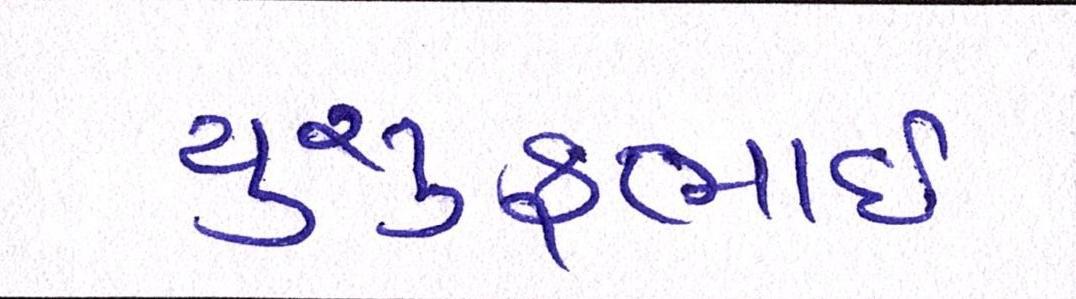 યુસુફભાઈ